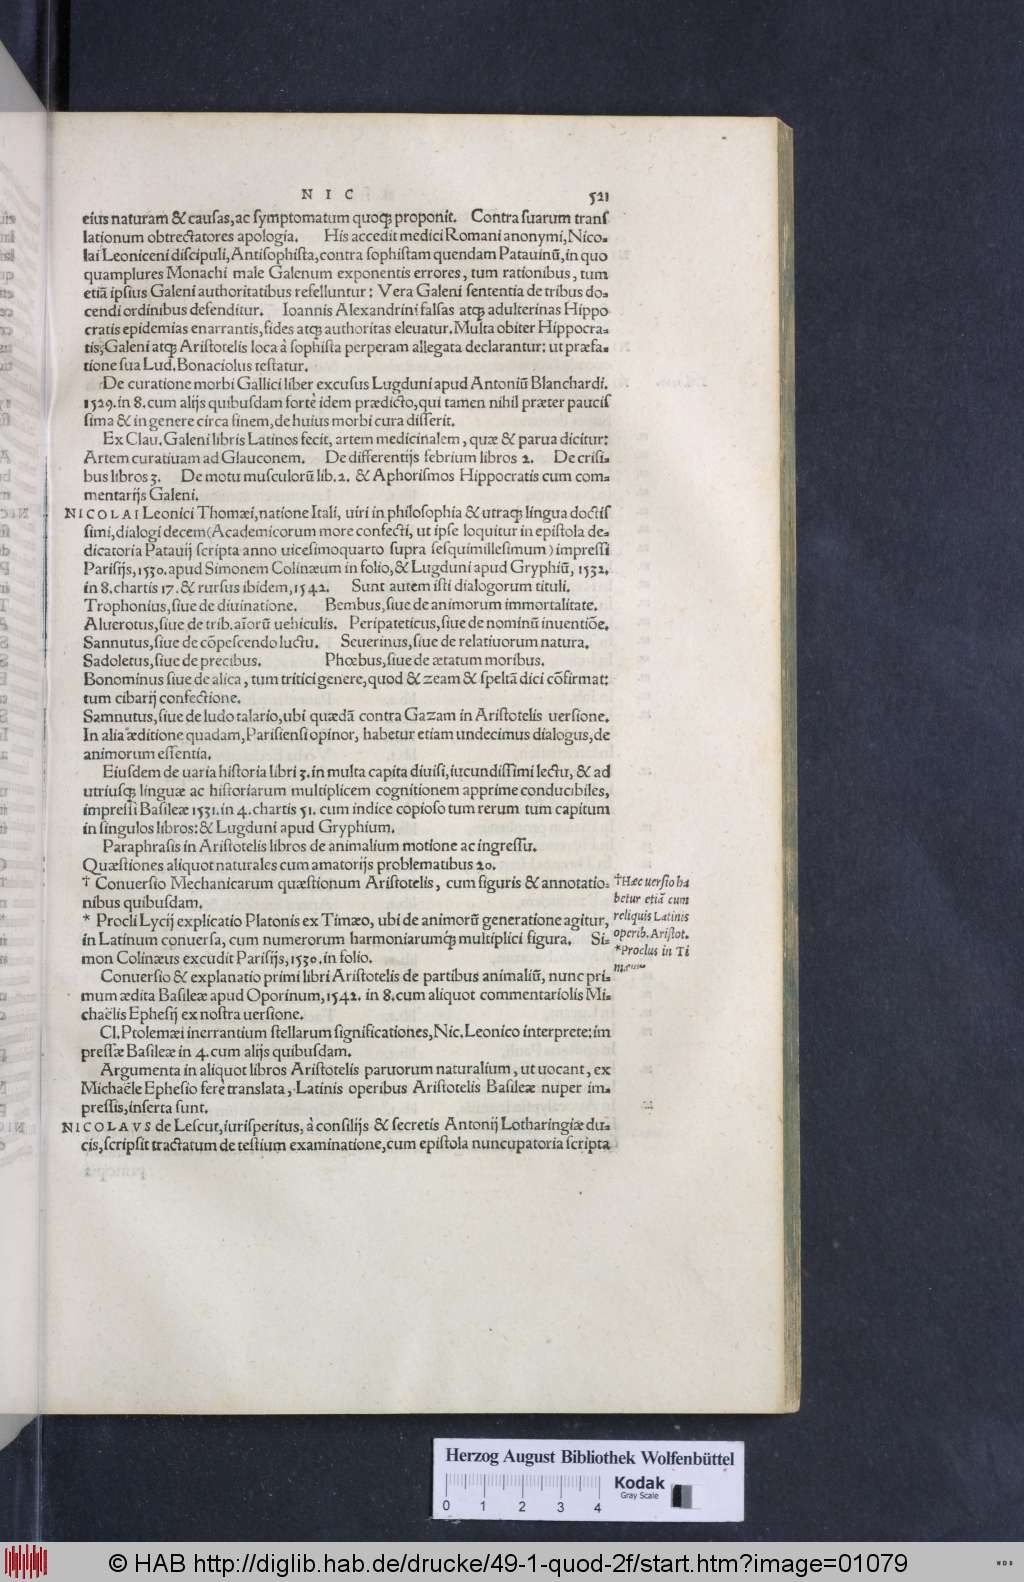 N I C 521
eius naturam & causas, ac symptomatum quoq; proponit. Contra suarum transs
lationum obtrectatores apologia. His accedit medici Romani anonymi, Nico-
lai Leoniceni discipuli, Antisophista, contra sophistam quendam Patauinū, in quo
quamplures Monachi male Galenum exponentis errores, tum rationibus, tum
etiā ipsius Galeni authoritatibus refelluntur: Vera Galeni sententia de tribus do-
cendi ordinibus defenditur. Ioannis Alexandrini falsas atq; adulterinas Hippo
cratis epidemias enarrantis, fides atq; authoritas eleuatur. Multa obiter Hippocra-
tis, Galeni atq; Aristotelis loca à sophista perperam allegata declarantur: ut præfa-
tione sua Lud. Bonaciolus testatur.
De curatione morbi Gallici liber excusus Lugduni apud Antoniū Blanchardi.
1529. in 8. cum alijs quibusdam fortè idem prædicto, qui tamen nihil præter paucis
sima & in genere circa finem, de huius morbi cura disserit.
Ex Clau. Galeni libris Latinos fecit, artem medicinalem, quæ & parua dicitur:
Artem curatiuam ad Glauconem. De differentijs febrium libros 2. De crisi-
bus libros 3. De motu musculorū lib. 2. & Aphorismos Hippocratis cum com-
mentarijs Galeni.
NICOLAI Leonici Thomæi, natione Itali, uiri in philosophia & utraq; lingua doctis
simi, dialogi decem (Academicorum more confecti, ut ipse loquitur in epistola de-
dicatoria Patauij scripta anno uicesimoquarto supra sesquimillesimum) impressi
Parisijs, 1530. apud Simonem Colinæum in folio, & Lugduni apud Gryphiū, 1532.
in 8. chartis 17. & rursus ibidem, 1542. Sunt autem isti dialogorum tituli.
Trophonius, siue de diuinatione. Bembus, siue de animorum immortalitate.
Aluerotus, siue de trib. aĩorū uehiculis. Peripateticus, siue de nominū inuentiõe.
Sannutus, siue de cõpescendo luctu. Seuerinus, siue de relatiuorum natura.
Sadoletus, siue de precibus. Phœbus, siue de ætatum moribus.
Bonominus siue de alica, tum tritici genere, quod & zeam & speltā dici cõfirmat:
tum cibarij confectione.
Samnutus, siue de ludo talario, ubi quædā contra Gazam in Aristotelis uersione.
In alia æditione quadam, Parisiensi opinor, habetur etiam undecimus dialogus, de
animorum essentia.
Eiusdem de uaria historia libri 3. in multa capita diuisi, iucundissimi lectu, & ad
utriusq; linguæ ac historiarum multiplicem cognitionem apprime conducibiles,
impressi Basileæ 1531. in 4. chartis 51. cum indice copioso tum rerum tum capitum
in singulos libros: & Lugduni apud Gryphium.
Paraphrasis in Aristotelis libros de animalium motione ac ingressu.
Quæstiones aliquot naturales cum amatorijs problematibus 20.
† Conuersio Mechanicarum quæstionum Aristotelis, cum figuris & annotatio-
nibus quibusdam.
* Procli Lycij explicatio Platonis ex Timæo, ubi de animorū generatione agitur,
in Latinum conuersa, cum numerorum harmoniarumq́; multiplici figura. Si-
mon Colinæus excudit Parisijs, 1530. in folio.
†Hæc uersio ha
betur etiā cum
reliquis Latinis
operib. Aristot.
*Proclus in Ti
mæum
Conuersio & explanatio primi libri Aristotelis de partibus animaliū, nunc pri-
mum ædita Basileæ apud Oporinum, 1542. in 8. cum aliquot commentariolis Mi-
chaëlis Ephesij ex nostra uersione.
Cl. Ptolemæi inerrantium stellarum significationes, Nic. Leonico interprete: im
pressæ Basileæ in 4. cum alijs quibusdam.
Argumenta in aliquot libros Aristotelis paruorum naturalium, ut uocant, ex
Michaële Ephesio ferè translata, Latinis operibus Aristotelis Basileæ nuper im-
pressis, inserta sunt.
NICOLAVS de Lescut, iurisperitus, à consilijs & secretis Antonij Lotharingiæ du-
cis, scripsit tractatum de testium examinatione, cum epistola nuncupatoria scripta
Herzog August Bibliothek Wolfenbüttel
0 1 2 3 4
Kodak
Gray Scale
© HAB http://diglib.hab.de/drucke/49-1-quod-2f/start.htm?image=01079